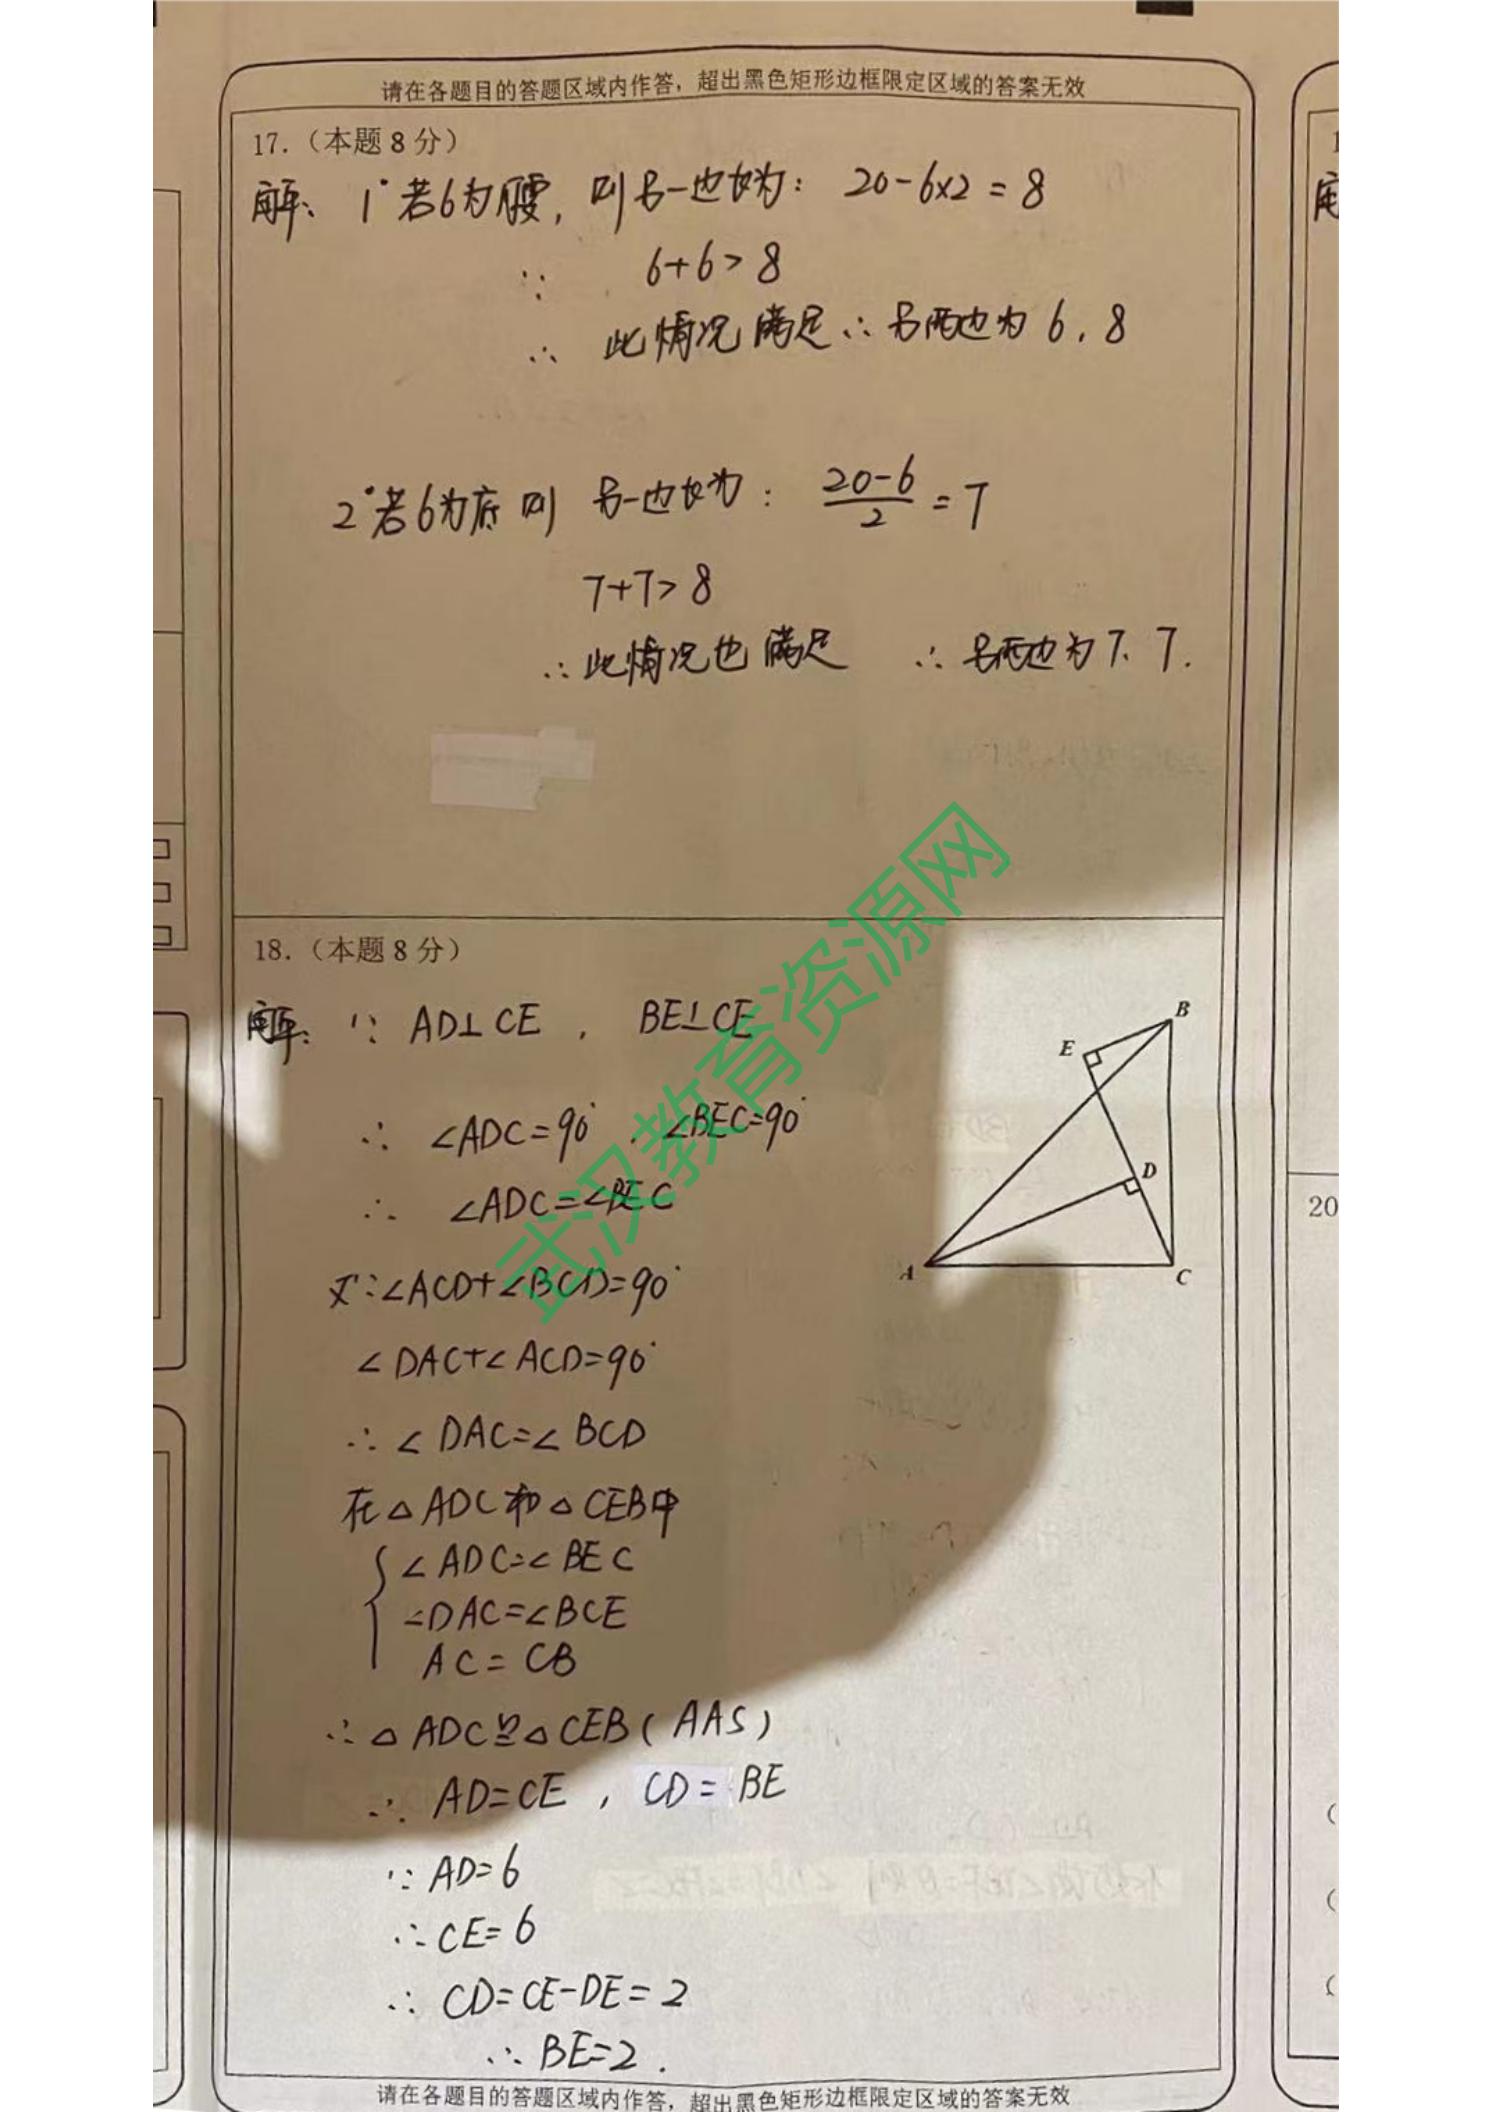 请在各题目的答题区域内作答，超出黑色矩形边框限定区域的答案无效
17.（本题8分）
解: 1° 若6为腰, 则另一边长为: 20-6×2=8
∵ 6+6>8
∴ 此情况满足 ∴ 另两边为 6, 8
2° 若6为底 则 另一边长为: \frac{20-6}{2}=7
7+7>8
∴ 此情况也满足 ∴ 另两边为 7、7.
18.（本题8分）
解: ∵ AD⊥CE , BE⊥CE
∴ ∠ADC=90° , ∠BEC=90°
∴ ∠ADC=∠BEC
又∵∠ACD+∠BCD=90°
∠DAC+∠ACD=90°
∴ ∠DAC=∠BCD
在△ADC和△CEB中
{ ∠ADC=∠BEC
∠DAC=∠BCE
AC=CB
∴△ADC≌△CEB(AAS)
∴ AD=CE , CD=BE
∵ AD=6
∴ CE=6
∴ CD=CE-DE=2
∴ BE=2.
B
E
D
A
C
20
武汉教育资源网
请在各题目的答题区域内作答，超出黑色矩形边框限定区域的答案无效